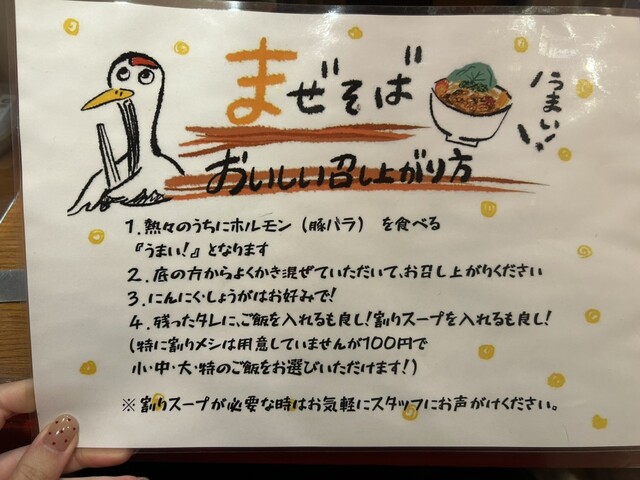 まぜそば
うまい!!
おいしい召し上がり方
1.熱々のうちにホルモン(豚バラ) を食べる
『うまい!』となります
2.底の方からよくかき混ぜていただいて、お召し上がりください
3.にんにく・しょうがはお好みで!
4.残ったタレに、ご飯を入れるも良し!割りスープを入れるも良し!
(特に割りメシは用意していませんが100円で
小・中・大・特のご飯をお選びいただけます!)
※割りスープが必要な時はお気軽にスタッフにお声がけください。